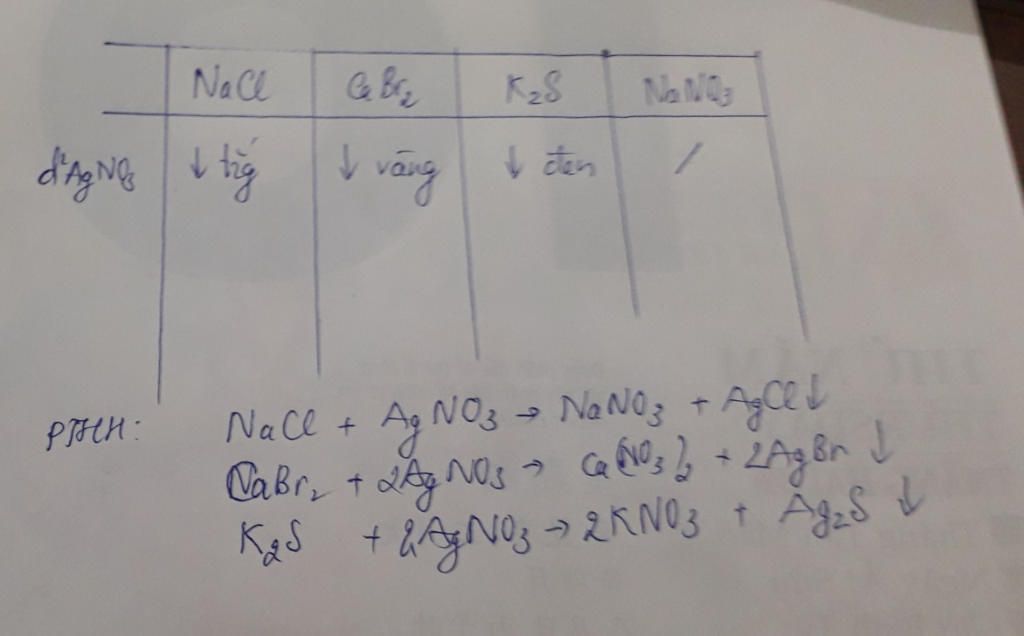 NaCl CaBr₂ K₂S NaNO₃
d² AgNO₃ ↓ trắg ↓ vàng ↓ đen /
PTHH: NaCl + AgNO₃ → NaNO₃ + AgCl↓
CaBr₂ + 2AgNO₃ → Ca(NO₃)₂ + 2AgBr ↓
K₂S + 2AgNO₃ → 2KNO₃ + Ag₂S ↓